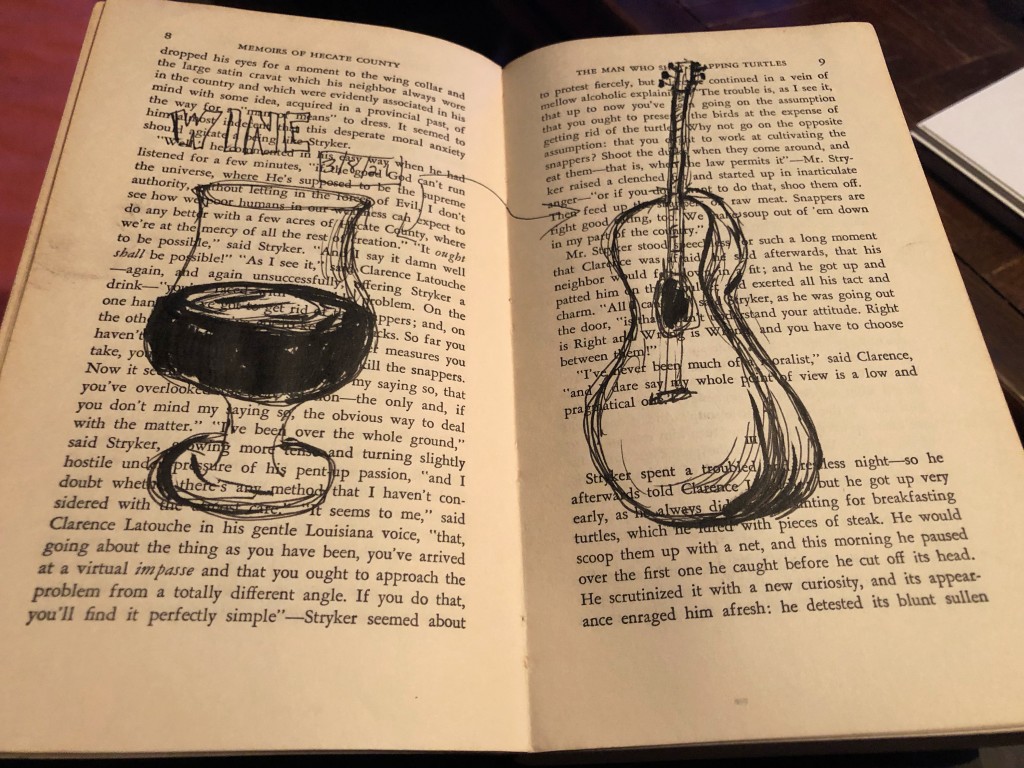 8
MEMOIRS OF HECATE COUNTY
dropped his eyes for a moment to the wing collar and
the large satin cravat which his neighbor always wore
in the country and which were evidently associated in his
mind with some idea, acquired in a provincial past, of
the way for "means" to dress. It seemed to
him most this desperate moral anxiety
should agitate a being like Stryker.
WINE
"Well," he commented in his easy way when he had
listened for a few minutes, "if the good God can't run
the universe, where He's supposed to be the supreme
authority, without letting in the forces of Evil, I don't
see how we poor humans in our weakness can expect to
do any better with a few acres of Hecate County, where
we're at the mercy of all the rest of Creation." "It ought
to be possible," said Stryker. "And I say it damn well
shall be possible!" "As I see it," said Clarence Latouche
—again, and again unsuccessfully, offering Stryker a
drink—"you problem. On the
one hand ppers; and, on
the oth cks. So far you
haven't got to get rid of measures you
take, you kill the snappers.
Now it see my saying so, that
you've overlooked on—the only and, if
you don't mind my saying so, the obvious way to deal
with the matter." "I've been over the whole ground,"
said Stryker, growing more tense and turning slightly
hostile under pressure of his pent-up passion, "and I
doubt whether there's any method that I haven't con-
sidered with the care." "It seems to me," said
Clarence Latouche in his gentle Louisiana voice, "that,
going about the thing as you have been, you've arrived
at a virtual impasse and that you ought to approach the
problem from a totally different angle. If you do that,
you'll find it perfectly simple"—Stryker seemed about
THE MAN WHO S APPING TURTLES
9
to protest fiercely, but continued in a vein of
mellow alcoholic explain "The trouble is, as I see it,
that up to now you've going on the assumption
that you ought to preserve the birds at the expense of
getting rid of the turtles. Why not go on the opposite
assumption: that you ought to work at cultivating the
snappers? Shoot the ducks when they come around, and
eat them—that is, when the law permits it"—Mr. Stry-
ker raised a clenched and started up in inarticulate
anger—"or if you don't want to do that, shoo them off.
Then feed up the snappers on raw meat. Snappers are
right good eating, too. We make soup out of 'em down
in my part of the country."
Mr. Stryker stood speechless for such a long moment
that Clarence was afraid, he said afterwards, that his
neighbor would fall down in a fit; and he got up and
patted him on the and exerted all his tact and
charm. "All I can say," said Stryker, as he was going out
the door, "is that I don't understand your attitude. Right
is Right and Wrong is Wrong, and you have to choose
between them!"
"I've never been much of a moralist," said Clarence,
"and I dare say my whole point of view is a low and
pragmatical one."
III
Stryker spent a troubled and restless night—so he
afterwards told Clarence but he got up very
early, as he always did hunting for breakfasting
turtles, which he lured with pieces of steak. He would
scoop them up with a net, and this morning he paused
over the first one he caught before he cut off its head.
He scrutinized it with a new curiosity, and its appear-
ance enraged him afresh: he detested its blunt sullen